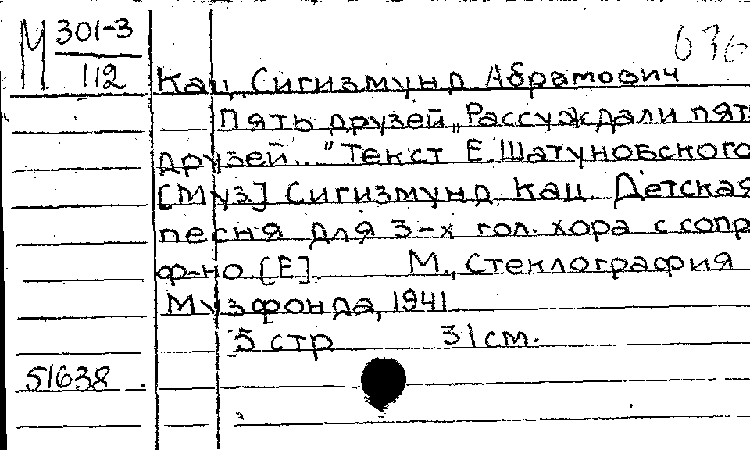 М 301-3
112
636
Кац, Сигизмунд Абрамович
Пять друзей „Рассуждали пят
друзей..." Текст Е. Шатуновского
[Муз] Сигизмунд Кац. Детская
песня для 3-х гол. хора с сопр
ф-но [Е]. М., Стеклография
Музфонда, 1941
5 стр 31 cm.
51638